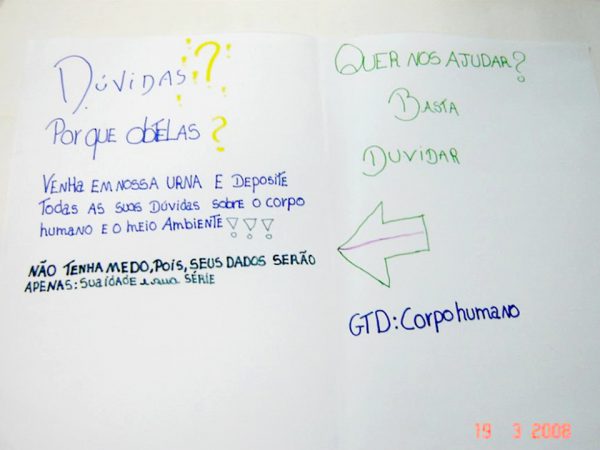 DÚVIDAS?
POR QUE OBTELAS?
VENHA EM NOSSA URNA E DEPOSITE
TODAS AS SUAS DÚVIDAS SOBRE O CORPO
HUMANO E O MEIO AMBIENTE!!!
NÃO TENHA MEDO, POIS, SEUS DADOS SERÃO
APENAS: SUA IDADE e sua SÉRIE
QUER NOS AJUDAR?
BASTA
DUVIDAR
GTD: Corpo humano
19 3 2008